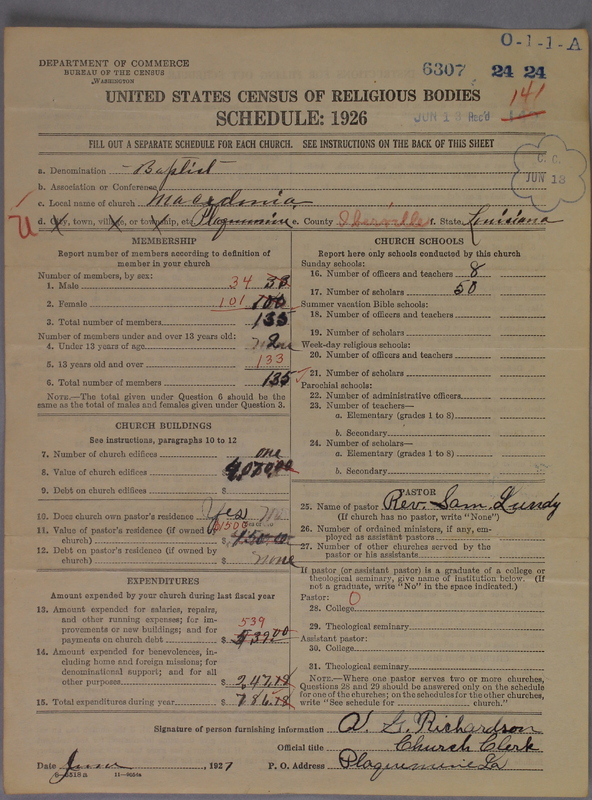 O-1-1-A
DEPARTMENT OF COMMERCE
BUREAU OF THE CENSUS
WASHINGTON
6307 24 24
141
UNITED STATES CENSUS OF RELIGIOUS BODIES
SCHEDULE: 1926
JUN 13 Rec'd
FILL OUT A SEPARATE SCHEDULE FOR EACH CHURCH. SEE INSTRUCTIONS ON THE BACK OF THIS SHEET
C. C.
JUN 13
a. Denomination Baptist
b. Association or Conference
c. Local name of church Macedonia
d. City, town, village, or township, etc. Plaquemine e. County Iberville f. State Louisiana
U
MEMBERSHIP
Report number of members according to definition of
member in your church
Number of members, by sex:
1. Male 34
2. Female 101 100
3. Total number of members 135
Number of members under and over 13 years old:
4. Under 13 years of age 2
5. 13 years old and over 133
6. Total number of members 135
NOTE.—The total given under Question 6 should be the
same as the total of males and females given under Question 3.
CHURCH BUILDINGS
See instructions, paragraphs 10 to 12
7. Number of church edifices one
8. Value of church edifices $
9. Debt on church edifices $
10. Does church own pastor's residence Yes
11. Value of pastor's residence (if owned by
church) $1500
12. Debt on pastor's residence (if owned by
church) none
EXPENDITURES
Amount expended by your church during last fiscal year
13. Amount expended for salaries, repairs,
and other running expenses; for im-
provements or new buildings; and for
payments on church debt $ 539 539.00
14. Amount expended for benevolences, in-
cluding home and foreign missions; for
denominational support; and for all
other purposes $ 247.18
15. Total expenditures during year $ 786.18
CHURCH SCHOOLS
Report here only schools conducted by this church
Sunday schools:
16. Number of officers and teachers 8
17. Number of scholars 50
Summer vacation Bible schools:
18. Number of officers and teachers
19. Number of scholars
Week-day religious schools:
20. Number of officers and teachers
21. Number of scholars
Parochial schools:
22. Number of administrative officers
23. Number of teachers—
a. Elementary (grades 1 to 8)
b. Secondary
24. Number of scholars—
a. Elementary (grades 1 to 8)
b. Secondary
PASTOR
25. Name of pastor Rev. Sam. Lundy
(If church has no pastor, write "None")
26. Number of ordained ministers, if any, em-
ployed as assistant pastors
27. Number of other churches served by the
pastor or his assistants
If pastor (or assistant pastor) is a graduate of a college or
theological seminary, give name of institution below. (If
not a graduate, write "No" in the space indicated.)
Pastor: 0
28. College
29. Theological seminary
Assistant pastor:
30. College
31. Theological seminary
NOTE.—Where one pastor serves two or more churches,
Questions 28 and 29 should be answered only on the schedule
for one of the churches; on the schedules for the other churches,
write "See schedule for church."
Signature of person furnishing information V. G. Richardson
Official title Church Clerk
Date June , 1927 P. O. Address Plaquemine La